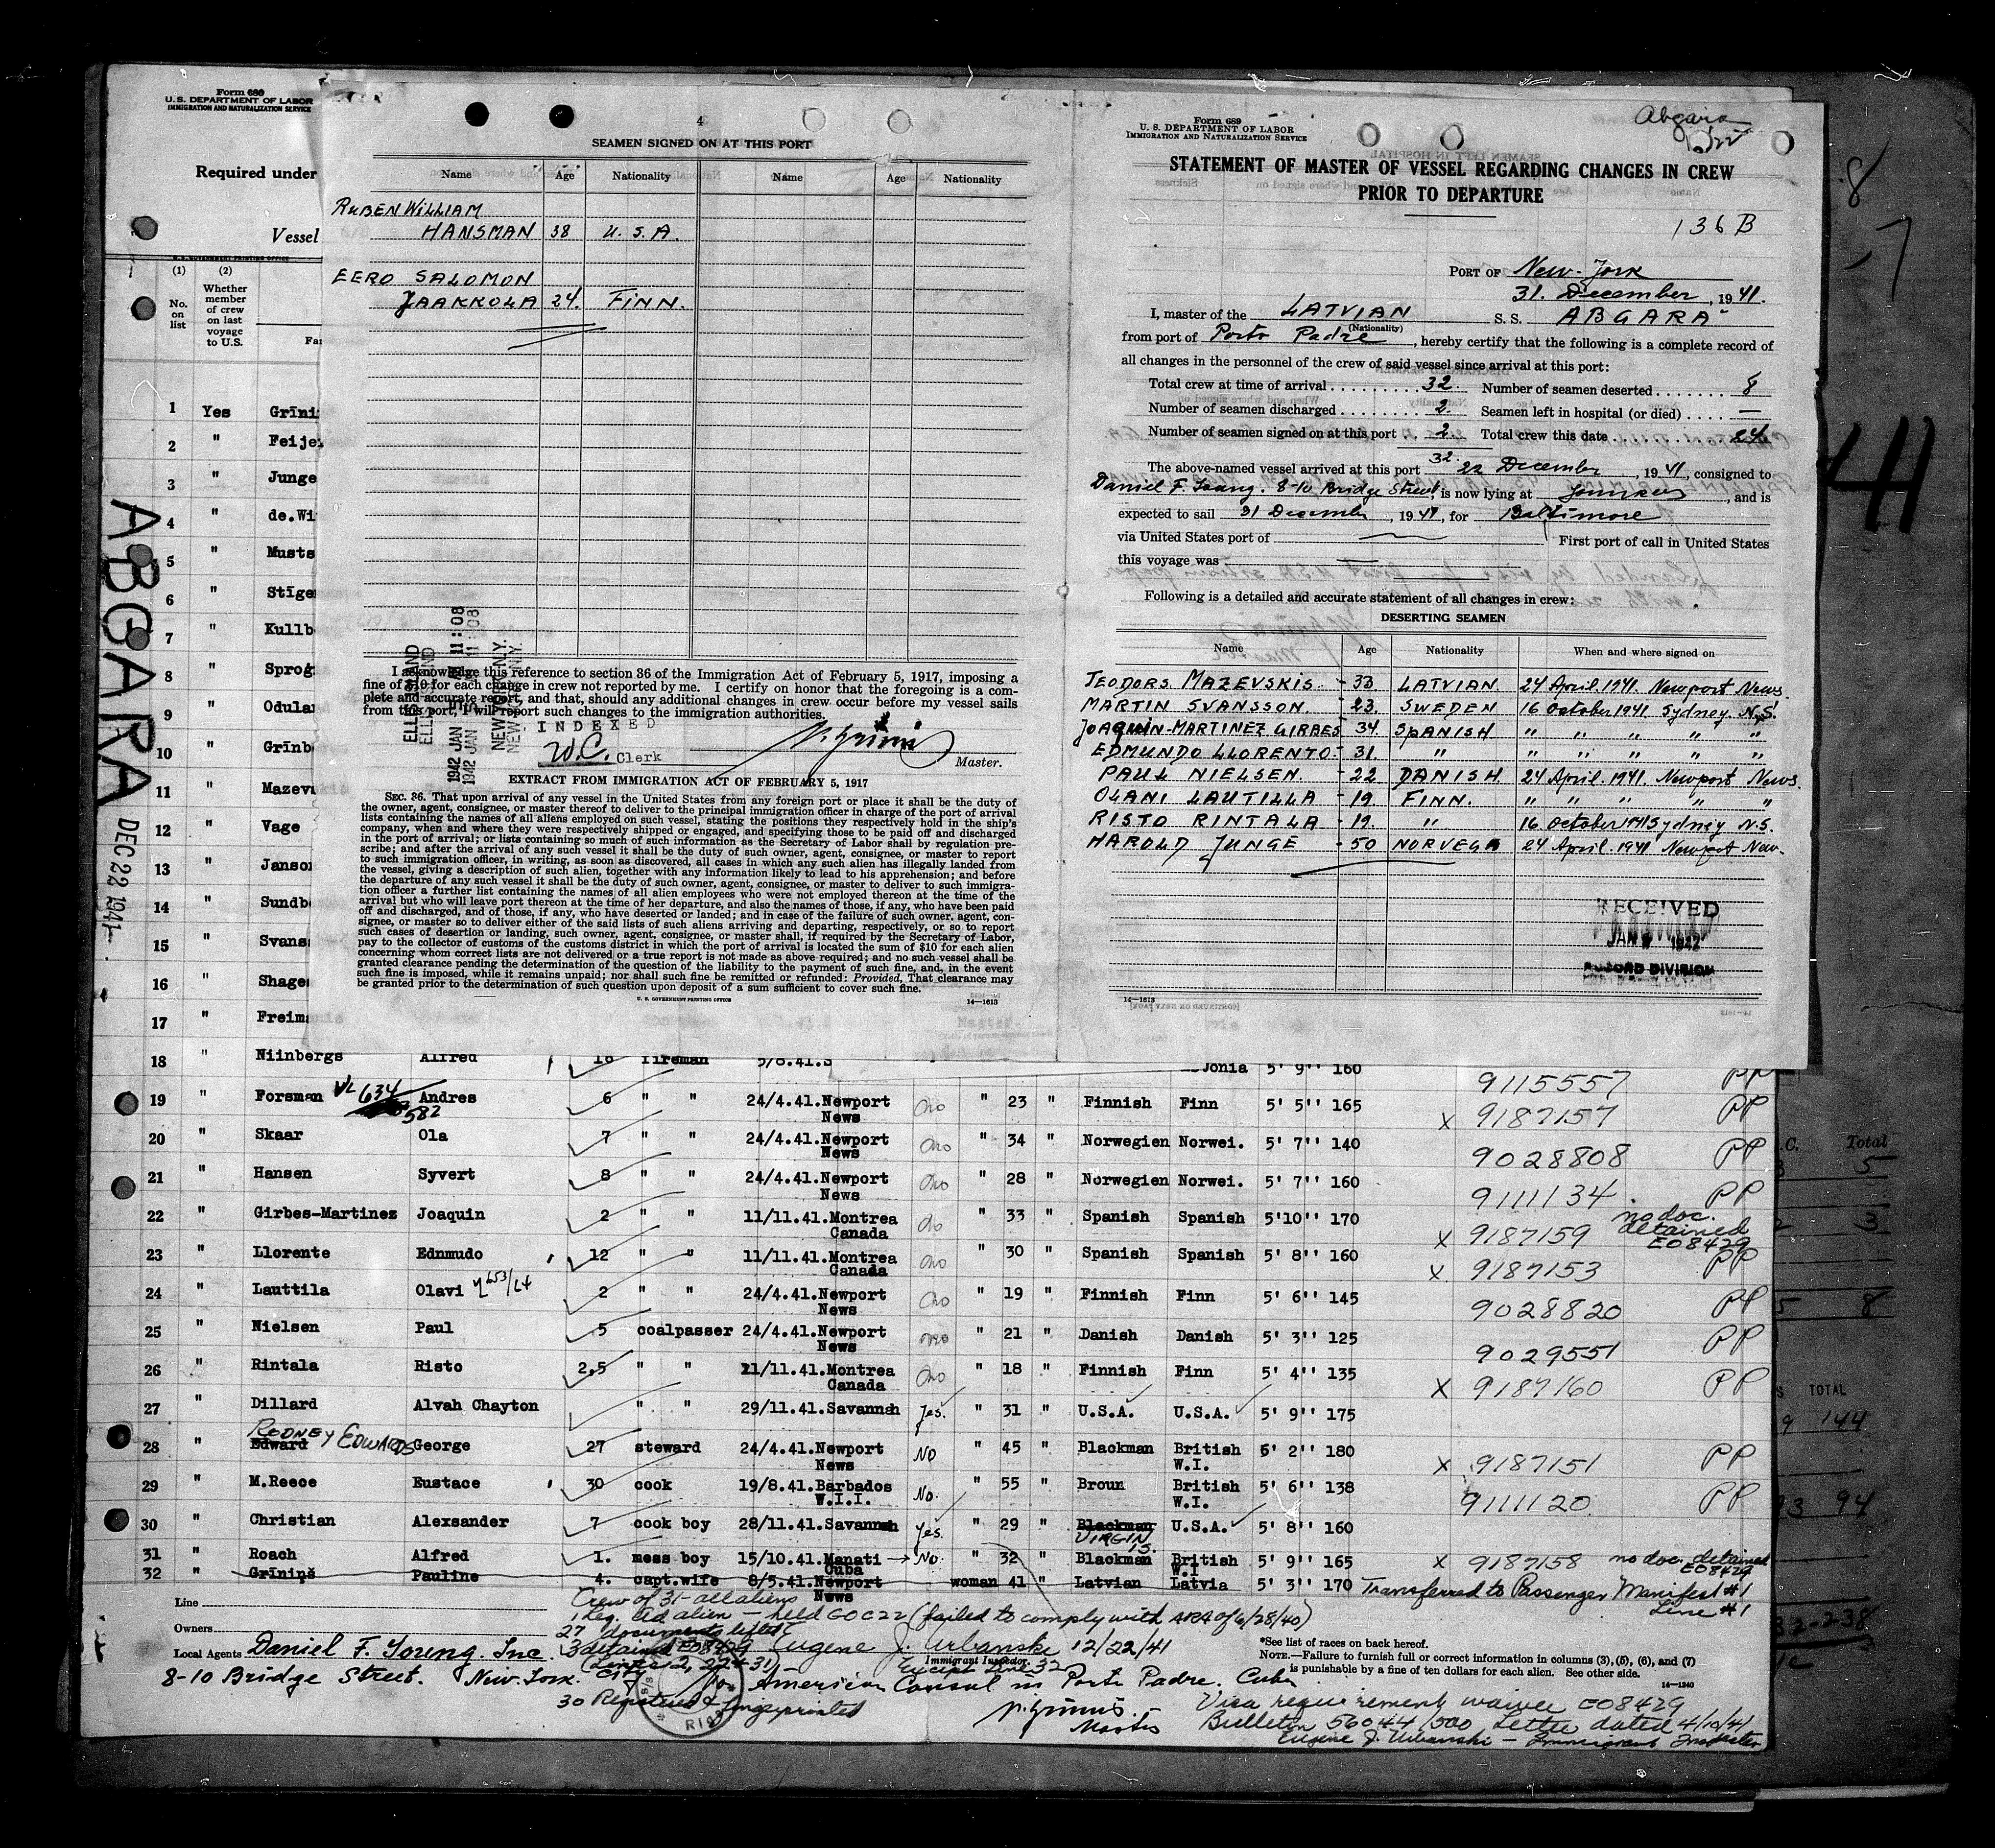 Form 680
U.S. DEPARTMENT OF LABOR
IMMIGRATION AND NATURALIZATION SERVICE
Required under
Vessel
(1) (2)
No. on list
Whether member of crew on last voyage to U.S.
1 Yes Grīni
2 " Feije
3 " Junge
4 " de.Wi
5 " Musts
6 " Stīge
7 " Kullb
8 " Sprog
9 " Odula
10 " Grīnb
11 " Mazev
12 " Vage
13 " Janso
14 " Sundb
15 " Svans
16 " Shage
17 " Freim
ABGARA DEC 22 1941
4
SEAMEN SIGNED ON AT THIS PORT
Name Age Nationality Name Age Nationality
RUBEN WILLIAM
HANSMAN 38 U.S.A.
EERO SALOMON
JAAKKOLA 24. FINN.
I acknowledge this reference to section 36 of the Immigration Act of February 5, 1917, imposing a
fine of $10 for each change in crew not reported by me. I certify on honor that the foregoing is a com-
plete and accurate report, and that, should any additional changes in crew occur before my vessel sails
from this port, I will report such changes to the immigration authorities.
INDEXED
W.C. Clerk
Master.
EXTRACT FROM IMMIGRATION ACT OF FEBRUARY 5, 1917
SEC. 36. That upon arrival of any vessel in the United States from any foreign port or place it shall be the duty of
the owner, agent, consignee, or master thereof to deliver to the principal immigration officer in charge of the port of arrival
lists containing the names of all aliens employed on such vessel, stating the positions they respectively hold in the ship's
company, when and where they were respectively shipped or engaged, and specifying those to be paid off and discharged
in the port of arrival; or lists containing so much of such information as the Secretary of Labor shall by regulation pre-
scribe; and after the arrival of any such vessel it shall be the duty of such owner, agent, consignee, or master to report
to such immigration officer, in writing, as soon as discovered, all cases in which any such alien has illegally landed from
the vessel, giving a description of such alien, together with any information likely to lead to his apprehension; and before
the departure of any such vessel it shall be the duty of such owner, agent, consignee, or master to deliver to such immigra-
tion officer a further list containing the names of all alien employees who were not employed thereon at the time of the
arrival but who will leave port thereon at the time of her departure, and also the names of those, if any, who have been paid
off and discharged, and of those, if any, who have deserted or landed; and in case of the failure of such owner, agent, con-
signee, or master so to deliver either of the said lists of such aliens arriving and departing, respectively, or so to report
such cases of desertion or landing, such owner, agent, consignee, or master shall, if required by the Secretary of Labor,
pay to the collector of customs of the customs district in which the port of arrival is located the sum of $10 for each alien
concerning whom correct lists are not delivered or a true report is not made as above required; and no such vessel shall be
granted clearance pending the determination of the question of the liability to the payment of such fine, and, in the event
such fine is imposed, while it remains unpaid; nor shall such fine be remitted or refunded: Provided, That clearance may
be granted prior to the determination of such question upon deposit of a sum sufficient to cover such fine.
U. S. GOVERNMENT PRINTING OFFICE 14—1613
Abgara
Form 689
U. S. DEPARTMENT OF LABOR
IMMIGRATION AND NATURALIZATION SERVICE
STATEMENT OF MASTER OF VESSEL REGARDING CHANGES IN CREW
PRIOR TO DEPARTURE
136 B
PORT OF New-York
31. December, 1941.
I, master of the LATVIAN S. S. ABGARA
(Nationality)
from port of Porto Padre, hereby certify that the following is a complete record of
all changes in the personnel of the crew of said vessel since arrival at this port:
Total crew at time of arrival 32. Number of seamen deserted 8
Number of seamen discharged 2. Seamen left in hospital (or died) —
Number of seamen signed on at this port 2. Total crew this date 24
The above-named vessel arrived at this port 22 December, 1941, consigned to
Daniel F. Young. 8-10 Bridge Street is now lying at Yonkers, and is
expected to sail 31 December, 1941, for Baltimore
via United States port of First port of call in United States
this voyage was
Following is a detailed and accurate statement of all changes in crew:
DESERTING SEAMEN
Name Age Nationality When and where signed on
TEODORS MAZEVSKIS - 33 LATVIAN 24 April 1941. Newport News.
MARTIN SVANSSON - 23. SWEDEN 16 October 1941. Sydney. N.S.
JOAQUIN-MARTINEZ GIRBES 34. SPANISH " " " " "
EDMUNDO LLORENTO - 31. " " " " " "
PAUL NIELSEN. - 22 DANISH 24 April. 1941. Newport News.
OLANI LAUTILLA - 19. FINN. " " " " "
RISTO RINTALA - 19. " 16 October 1941 Sydney N.S.
HAROLD JUNGE - 50 NORVEGA 24 April. 1941 Newport New.
RECEIVED
JAN 1942
RECORD DIVISION
14—1613
18 " Niinbergs Alfred 16 fireman 5/8.41.S onia 5' 9'' 160 9115557 PP
19 " Forsman Andres 6 " " 24/4.41.Newport News no " 23 " Finnish Finn 5' 5'' 165 x 9187157 PP
20 " Skaar Ola 7 " " 24/4.41.Newport News no " 34 " Norwegien Norwei. 5' 7'' 140 9028808 PP
21 " Hansen Syvert 8 " " 24/4.41.Newport News no " 28 " Norwegien Norwei. 5' 7'' 160 9111134 PP
22 " Girbes-Martinez Joaquin 2 " " 11/11.41.Montrea Canada no " 33 " Spanish Spanish 5'10'' 170 x 9187159 no doc. detained E08429
23 " Llorente Ednmudo 12 " " 11/11.41.Montrea Canada no " 30 " Spanish Spanish 5' 8'' 160 x 9187153 PP
24 " Lauttila Olavi 2 " " 24/4.41.Newport News no " 19 " Finnish Finn 5' 6'' 145 9028820 PP
25 " Nielsen Paul 5 coalpasser 24/4.41.Newport News no " 21 " Danish Danish 5' 3'' 125 9029551 PP
26 " Rintala Risto 2,5 " " 11/11.41.Montrea Canada no " 18 " Finnish Finn 5' 4'' 135 x 9187160 PP
27 " Dillard Alvah Chayton " " 29/11.41.Savannah Yes. " 31 " U.S.A. U.S.A. 5' 9'' 175
RODNEY EDWARDS
28 " Edward George 27 steward 24/4.41.Newport News NO " 45 " Blackman British W.I. 6' 2'' 180 x 9187151 PP
29 " M.Reece Eustace 30 cook 19/8.41.Barbados W.I.I. No. " 55 " Broun British W.I. 5' 6'' 138 9111120 PP
30 " Christian Alexsander 7 cook boy 28/11.41.Savannah Yes. " 29 " Blackman VIRGIN IS. U.S.A. 5' 8'' 160
31 " Roach Alfred 1. mess boy 15/10.41.Manati Cuba No. " 32 " Blackman British W.I 5' 9'' 165 x 9187158 no doc. detained E08429
32 " Grīniņš Pauline 4. capt.wife 8/5.41.Newport News woman 41 " Latvian Latvia 5' 3'' 170 Transferred to Passenger Manifest #1 Line #1
Line
Crew of 31 - all aliens
held GOC22 (failed to comply with ARA of 6/28/40)
Owners
27 documents lifted
Local Agents Daniel F. Young. Inc. 3 detained E08429 Eugene J. Urbanski 12/22/41
Immigrant Inspector
Except Line 32
8-10 Bridge Street. New-York. American Consul in Porto Padre. Cuba
30 Registered & fingerprinted
*See list of races on back hereof.
NOTE.—Failure to furnish full or correct information in columns (3), (5), (6), and (7)
is punishable by a fine of ten dollars for each alien. See other side.
14—1240
Master
Visa requirement waived E08429
Bulletin 56044/500 Letter dated 4/10/41
Eugene J. Urbanski - Immigrant Inspector
41
Total
5
3
8
TOTAL
144
94